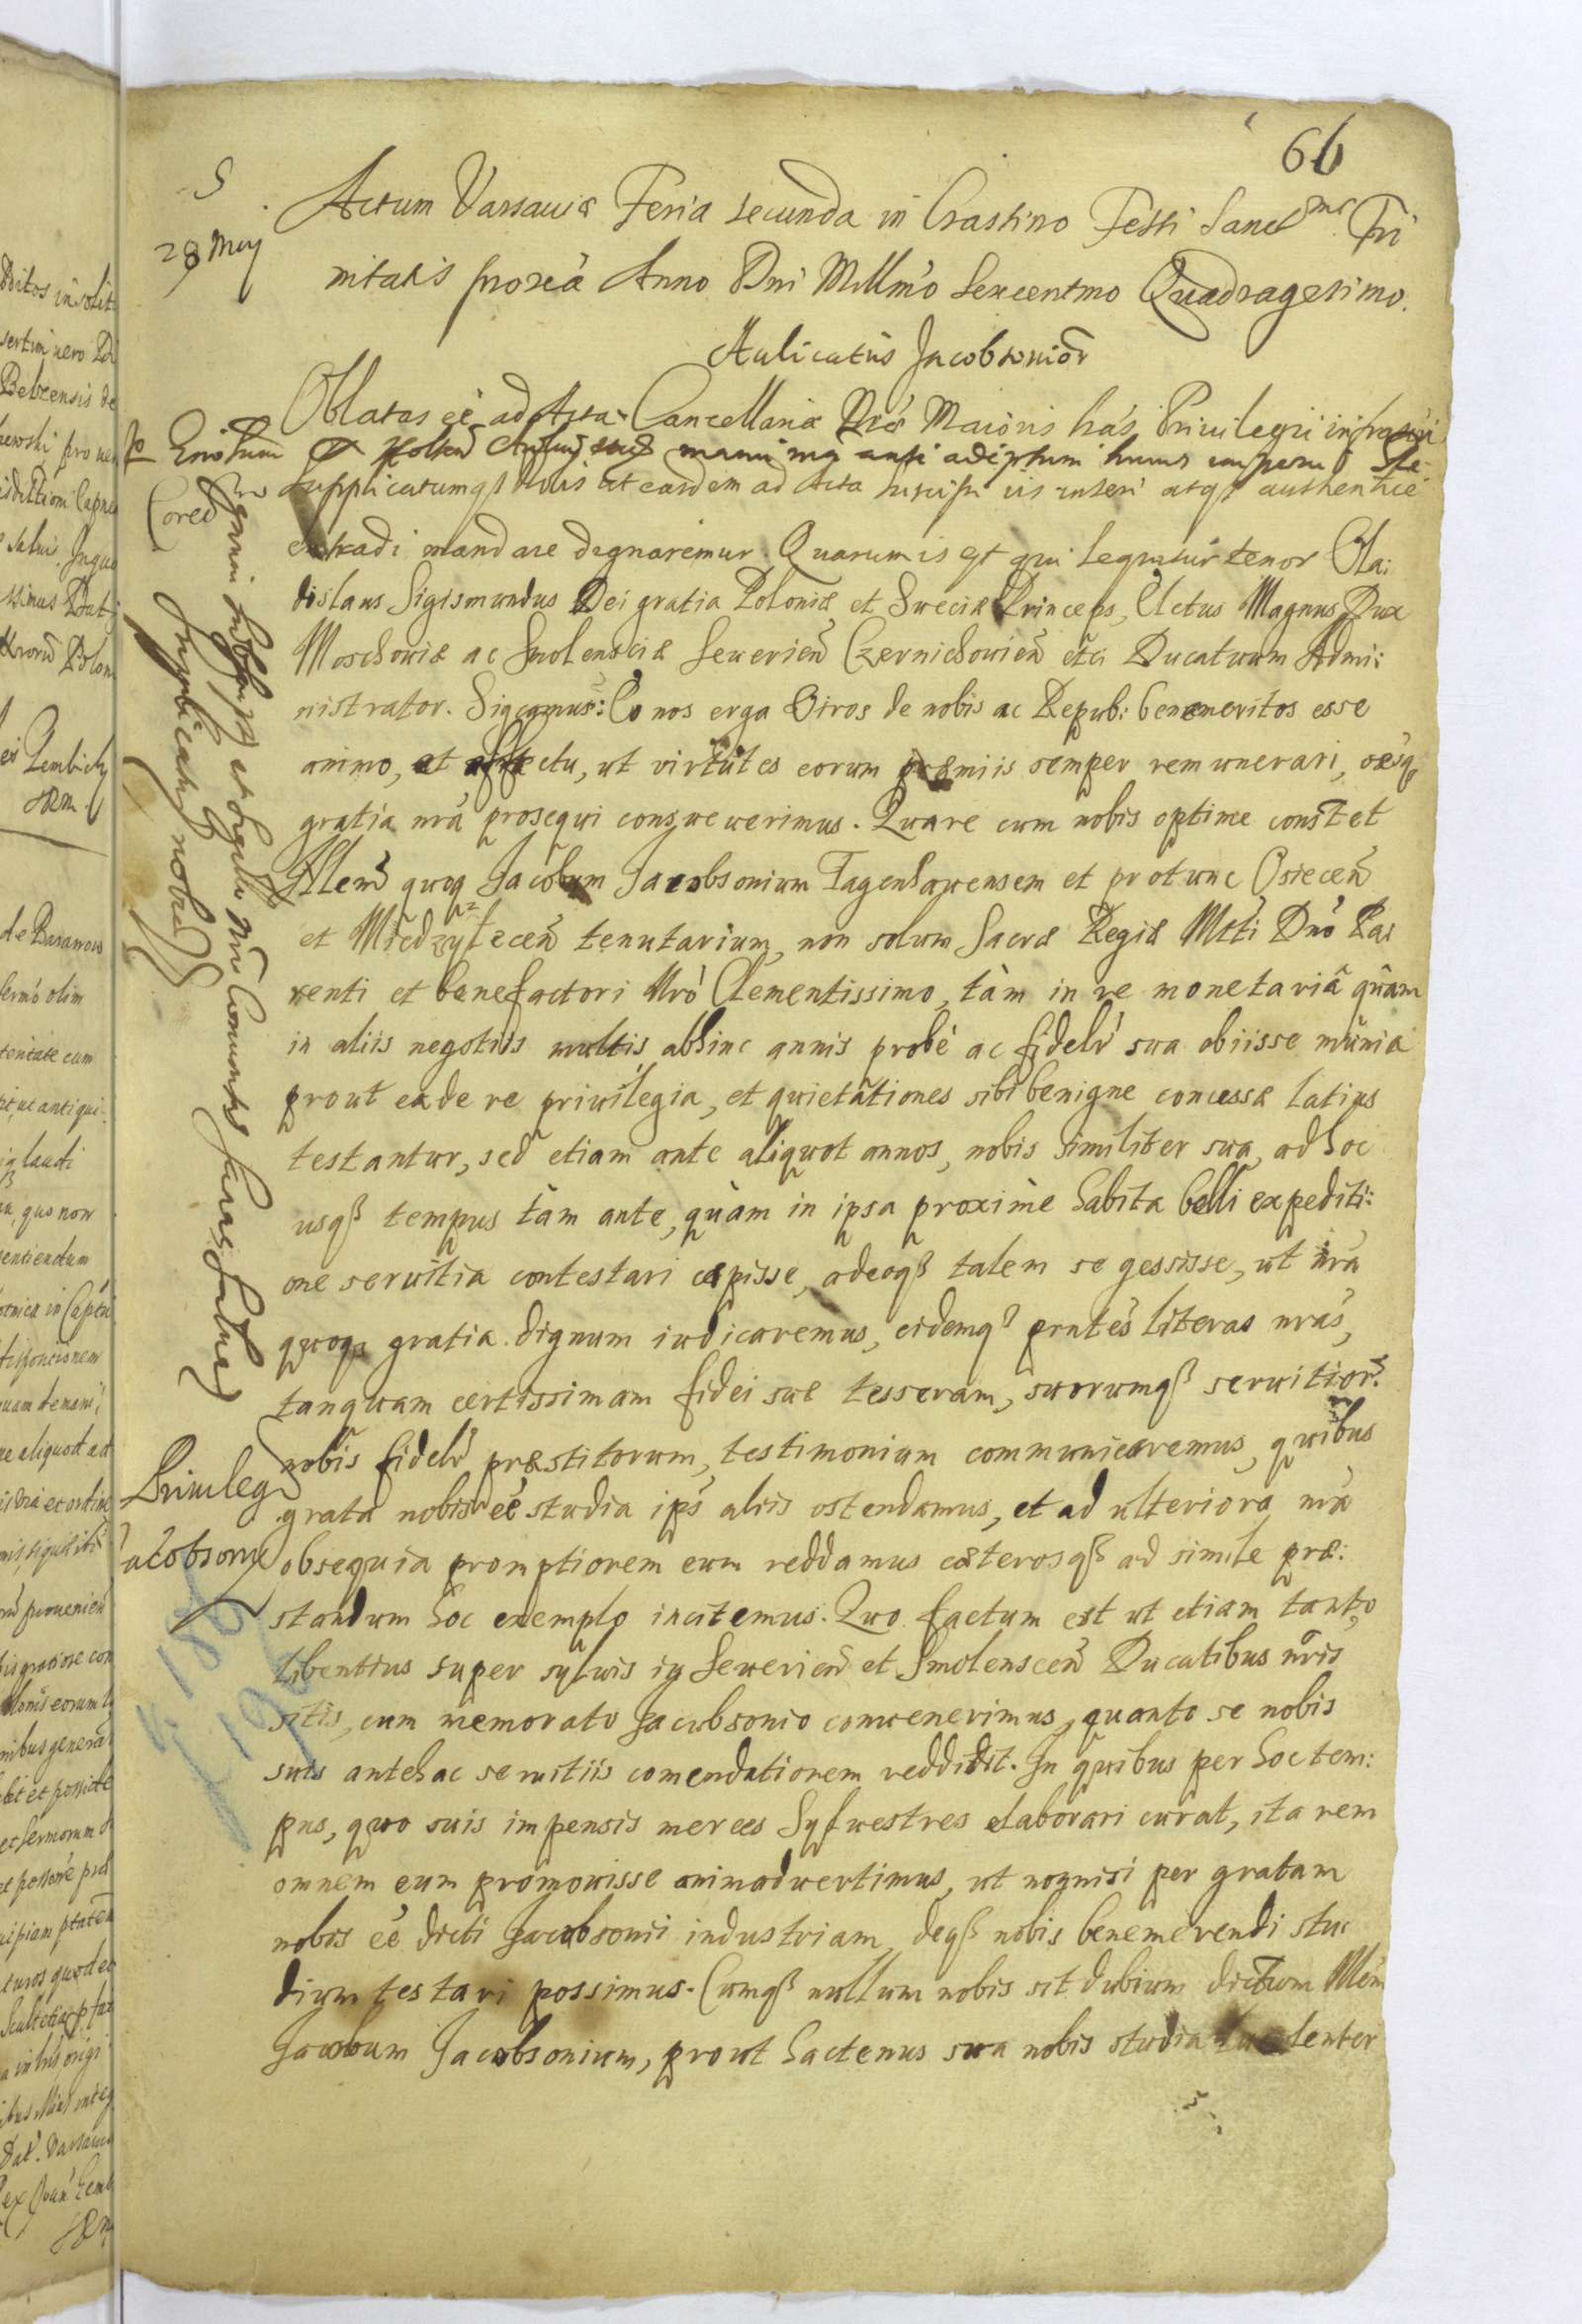 66
S
28 Maij
Actum Varsaviæ Feria secunda in Crastino Festi Sanctmæ Tri
nitatis proxa Anno Dni Millmo Sexcentmo Quadragesimo.
Aulicatus Jacobsonior
Oblatas eé ad Acta Cancellariæ Nræ Maioris has Privilegii infrascri
manu ma
supplicatumqß Nobis ut easdem ad Acta suscipi iis inseri atqß authentice
extradi mandare dignaremur. Quarum is est qui legitur tenor Vla:
dislaus Sigismundus Dei gratia Poloniæ et Sweciæ Princeps, Elctus Magnus Dux
Moschoviæ ac Smolensciæ Severien Czernichovien etc Ducatuum Admi:
nistrator. Sigcamus: Eo nos erga Viros de nobis ac Repub: benemeritos esse
animo, et affectu, ut virtutes eorum præmiis semper remunerari, eosq
gratia nra prosequi consueverimus. Quare cum nobis optime constet
Illem quoq Jacobum Jacobsonium Tagenhowensem et protunc Osiecen
et Miedzylecen tenutarium, non solum Sacræ Regiæ Mtti Dno Pa:
renti et benefactori Nro Clementissimo, tàm in re monetariâ quam
in aliis negotiis multis abhinc annis probè ac fidelr sua obiisse munia
prout ea de re privilegia, et quietationes sibi benigne concessæ latius
testantur, sed etiam ante aliquot annos, nobis similiter sua, ad hoc
usqß tempus tàm ante, quàm in ipsa proxime habita belli expediti:
one servitia contestari cæpisse, adeoqß talem se gessisse, ut nra
quoqß gratia dignum iudicaremus, eidemqß prntes literas nras,
tanquam certissimam fidei suæ tesseram, suorumqß servitior.
nobis fidelr præstitorum, testimonium communicaremus, quibus
grata nobis eé studia ips aliis ostendamus, et ad ulteriora nra
obsequia promptiorem eum reddamus cæterosqß ad simile præ:
standum hoc exemplo incitemus. Quo factum est ut etiam tanto
libentius super sylvis in Severien et Smolenscen Ducatibus nris
sitis, cum memorato Jacobsonio convenerimus, quanto se nobis
suis antehac servitiis comendatiorem reddidit. In quibus per hoc tem:
pus, quo suis impensis merces Sylvestres elaborari curat, ita rem
omnem eum promovisse animadvertimus, ut non nisi per gratam
nobis eé dicti Jacobsonii industriam, deqß nobis benemerendi stu:
dium testari possimus. Cumqß nullum nobis sit dubium dictum Illem
Jacobum Jacobsonium, prout hactenus sua nobis studia luculenter
Privileg
Jacobsony